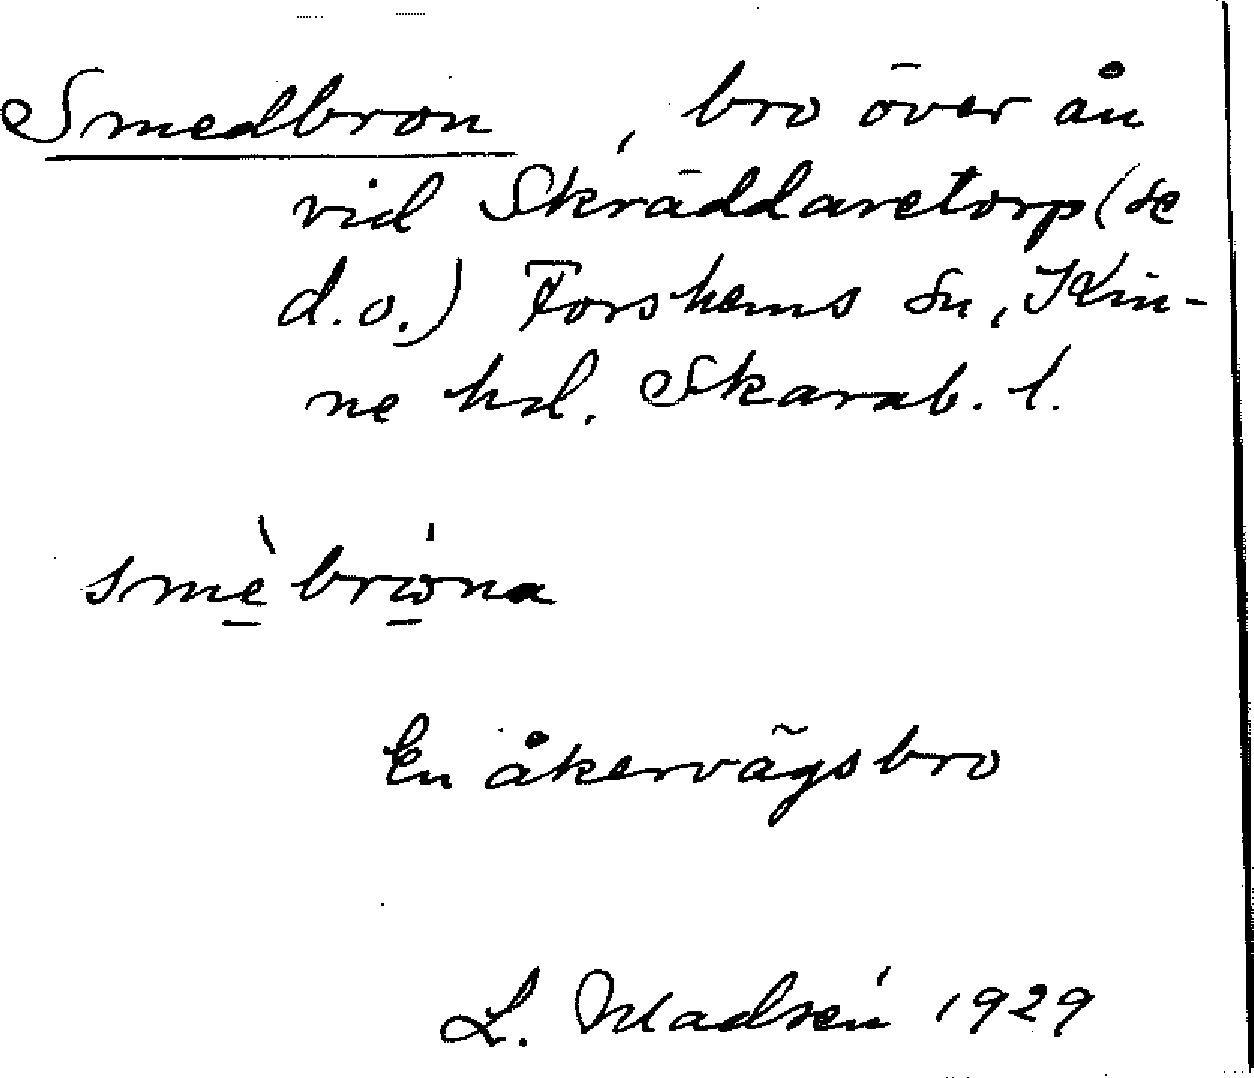 Smedbron, bro över ån
vid Skräddaretorp (se
d.o.) Forshems sn, Kin-
ne hd. Skarab. l.
smè̠brώ̠na
En åkervägsbro
L. Madsén 1929